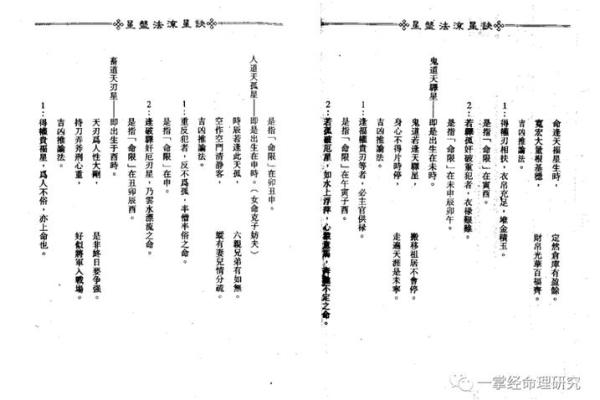 星盤法涼星訣
命逢天福星生時，　定然倉庫有盈餘。
寬宏大量根基穩，　財帛光華百福齊。
吉凶推論法。
1：得權刃相扶，衣帛充足，堆金積玉。
是指「命限」在寅酉。
2：若驛孤奸破寃犯者，衣祿艱難。
是指「命限」在未申辰卯午。
鬼道天驛星——即是出生在未時。
鬼道若逢天驛星，　搬移祖居不會停。
身心不得片時停，　走遍天涯是未寧。
吉凶推論法。
1：逢福權貴刃等者，必主官供祿。
是指「命限」在午寅子酉。
2：若孤破厄星，如水上浮萍，心意不定之命。
星盤法涼星訣
是指「命限」在卯丑申。
人道天孤星——即是出生在申時。（女命克子妨夫）
時辰若逢此天孤，　六親兄弟有如無。
空作空門清靜客，　縱有妻兒情分疏。
吉凶推論法。
1：重反犯者，反不爲孤，半憎半俗之命。
是指「命限」在申。
2：逢破驛奸厄刃星，乃雲水漂流之命。
是指「命限」在丑卯辰酉。
畜道天刃星——即出生于酉時。
天刃爲人性太剛，　是非終日要爭强。
持刀弄斧刑心重，　好似將軍入戰場。
吉凶推論法。
1：得權貴福星，爲人不俗，亦上命也。
一掌经命理研究